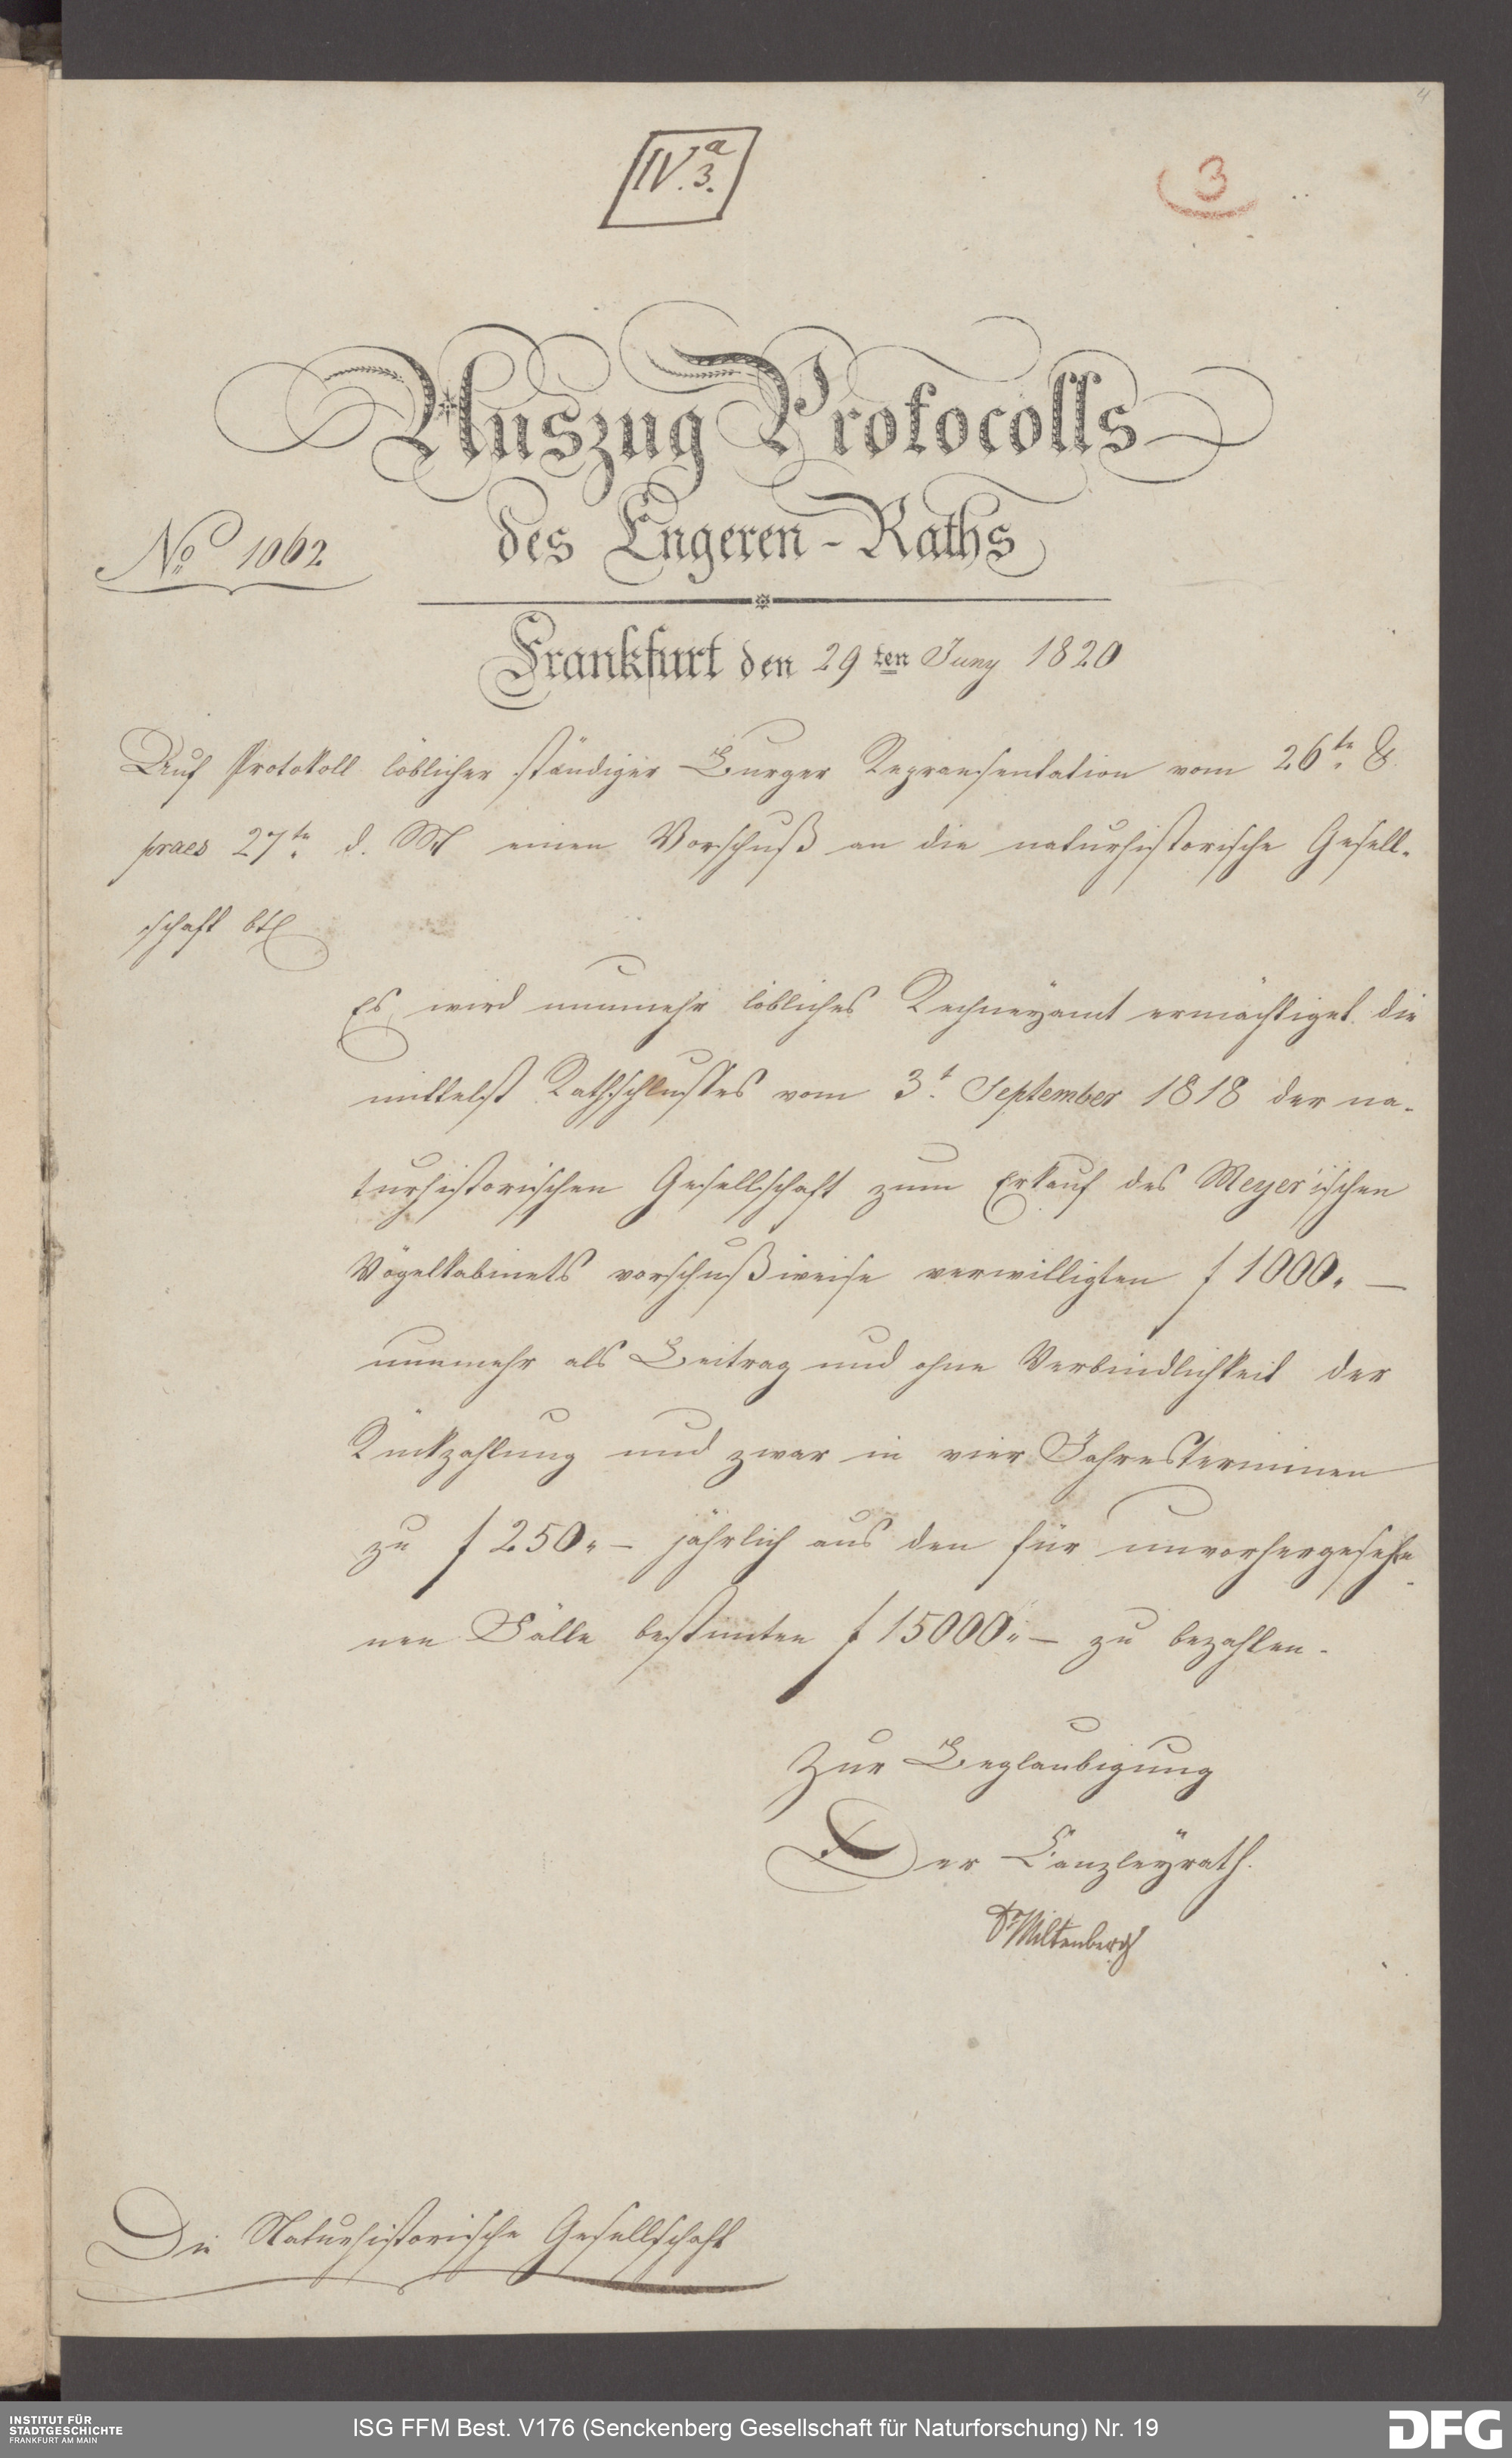 4
IV.a 3.
3
Auszug Protocolls
des Engeren-Raths
No 1062
Frankfurt den 29ten Juny 1820
Auf Protokoll löblicher ständiger Burger Repraesentation vom 26tn &
praes 27tn d. M einen Vorschuß an die naturhistorische Gesell-
schaft btl
Es wird nunmehr löbliches Rechneyamt ermächtiget die
mittelst Rathschlusses vom 3t September 1818 der na-
turhistorischen Gesellschaft zum Erkauf des Meyer'ischen
Vögelkabinets vorschußweise verwilligten f 1000. —
nunmehr als Beitrag und ohne Verbindlichkeit der
Rückzahlung und zwar in vier Jahresterminen
zu f 250. — jährlich aus den für unvorhergesehe-
nen Fälle bestimten f 15000. — zu bezahlen.
Zur Beglaubigung
Der Canzleyrath.
Dr Miltenberg
Die Naturhistorische Gesellschaft
INSTITUT FÜR
STADTGESCHICHTE
FRANKFURT AM MAIN
ISG FFM Best. V176 (Senckenberg Gesellschaft für Naturforschung) Nr. 19
DFG